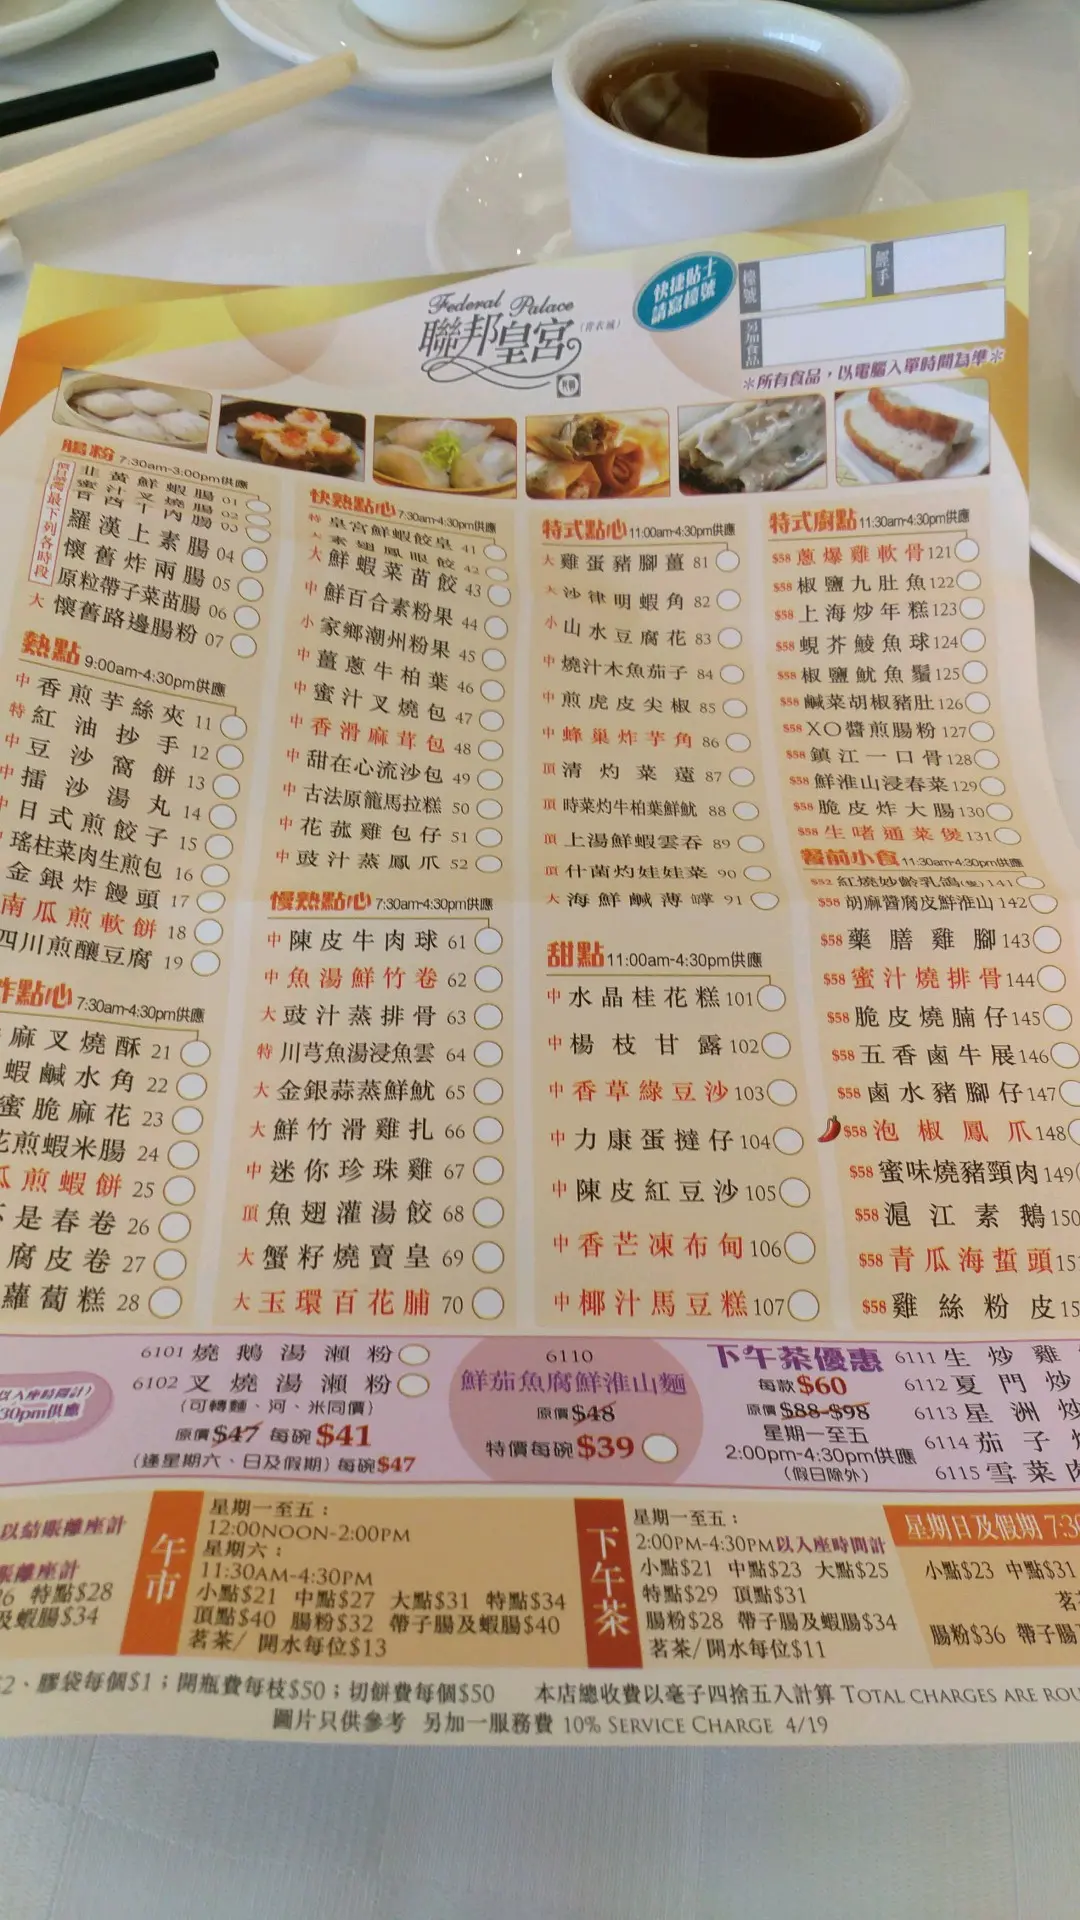 Federal Palace
聯邦皇宮
(青衣城)
快捷貼士
請寫檯號
檯號
經手
另加食品
*所有食品，以電腦入單時間為準*
腸粉 7:30am-3:00pm供應
韭黃鮮蝦腸 01
蜜汁叉燒腸 02
百西干肉腸 03
羅漢上素腸 04
懷舊炸兩腸 05
原粒帶子菜苗腸 06
大 懷舊路邊腸粉 07
熱點 9:00am-4:30pm供應
中 香煎芋絲夾 11
特 紅油抄手 12
中 豆沙窩餅 13
中 擂沙湯丸 14
中 日式煎餃子 15
瑤柱菜肉生煎包 16
金銀炸饅頭 17
南瓜煎軟餅 18
四川煎釀豆腐 19
炸點心 7:30am-4:30pm供應
麻叉燒酥 21
蝦鹹水角 22
蜜脆麻花 23
花煎蝦米腸 24
瓜煎蝦餅 25
不是春卷 26
腐皮卷 27
蘿蔔糕 28
快熟點心 7:30am-4:30pm供應
特 皇宮鮮蝦餃皇 41
大 素翅鳳眼餃 42
大 鮮蝦菜苗餃 43
中 鮮百合素粉果 44
小 家鄉潮州粉果 45
中 薑蔥牛柏葉 46
中 蜜汁叉燒包 47
中 香滑麻茸包 48
中 甜在心流沙包 49
中 古法原籠馬拉糕 50
中 花菰雞包仔 51
中 豉汁蒸鳳爪 52
慢熟點心 7:30am-4:30pm供應
中 陳皮牛肉球 61
中 魚湯鮮竹卷 62
大 豉汁蒸排骨 63
特 川芎魚湯浸魚雲 64
大 金銀蒜蒸鮮魷 65
大 鮮竹滑雞扎 66
中 迷你珍珠雞 67
頂 魚翅灌湯餃 68
大 蟹籽燒賣皇 69
大 玉環百花脯 70
特式點心 11:00am-4:30pm供應
大 雞蛋豬腳薑 81
大 沙律明蝦角 82
小 山水豆腐花 83
中 燒汁木魚茄子 84
中 煎虎皮尖椒 85
中 蜂巢炸芋角 86
頂 清灼菜薳 87
頂 時菜灼牛柏葉鮮魷 88
頂 上湯鮮蝦雲吞 89
頂 什菌灼娃娃菜 90
大 海鮮鹹薄罉 91
甜點 11:00am-4:30pm供應
中 水晶桂花糕 101
中 楊枝甘露 102
中 香草綠豆沙 103
中 力康蛋撻仔 104
中 陳皮紅豆沙 105
中 香芒凍布甸 106
中 椰汁馬豆糕 107
特式廚點 11:30am-4:30pm供應
$58 蔥爆雞軟骨 121
$58 椒鹽九肚魚 122
$58 上海炒年糕 123
$58 蜆芥鯪魚球 124
$58 椒鹽魷魚鬚 125
$58 鹹菜胡椒豬肚 126
$58 XO醬煎腸粉 127
$58 鎮江一口骨 128
$58 鮮淮山浸春菜 129
$58 脆皮炸大腸 130
$58 生啫通菜煲 131
餐前小食 11:30am-4:30pm供應
$52 紅燒妙齡乳鴿(隻) 141
$58 胡麻醬腐皮鮮淮山 142
$58 藥膳雞腳 143
$58 蜜汁燒排骨 144
$58 脆皮燒腩仔 145
$58 五香鹵牛展 146
$58 鹵水豬腳仔 147
$58 泡椒鳳爪 148
$58 蜜味燒豬頸肉 149
$58 滬江素鵝 150
$58 青瓜海蜇頭 151
$58 雞絲粉皮 15
以入座時間計)
30pm供應
6101 燒鵝湯瀨粉
6102 叉燒湯瀨粉
(可轉麵、河、米同價)
原價$47 每碗$41
(逢星期六、日及假期) 每碗$47
6110
鮮茄魚腐鮮淮山麵
原價$48
特價每碗$39
下午茶優惠
每款$60
原價$88-$98
星期一至五
2:00pm-4:30pm供應
(假日除外)
6111 生炒雞
6112 夏門炒
6113 星洲炒
6114 茄子
6115 雪菜肉
以結賬離座計
賬離座計
特點$28
及蝦腸$34
午市
星期一至五：
12:00NOON-2:00PM
星期六：
11:30AM-4:30PM
小點$21 中點$27 大點$31 特點$34
頂點$40 腸粉$32 帶子腸及蝦腸$40
茗茶/開水每位$13
下午茶
星期一至五：
2:00PM-4:30PM以入座時間計
小點$21 中點$23 大點$25
特點$29 頂點$31
腸粉$28 帶子腸及蝦腸$34
茗茶/開水每位$11
星期日及假期 7:30
小點$23 中點$31
茗
腸粉$36 帶子腸
$2、膠袋每個$1；開瓶費每枝$50；切餅費每個$50 本店總收費以毫子四捨五入計算 TOTAL CHARGES ARE ROU
圖片只供參考 另加一服務費 10% SERVICE CHARGE 4/19